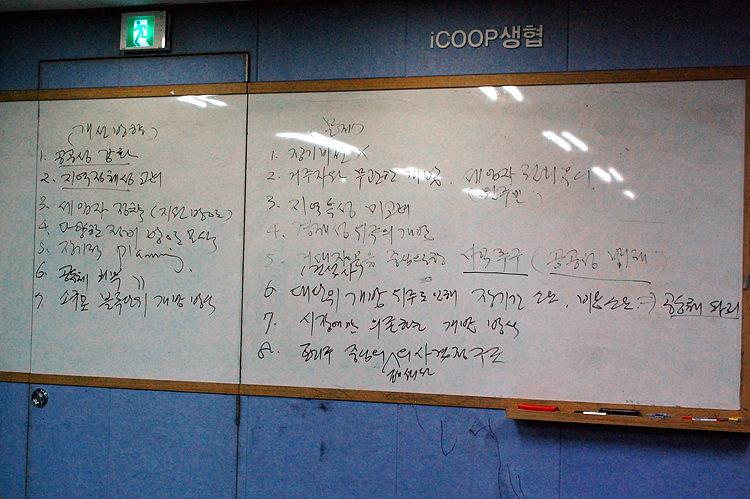 iCOOP생협
(개선 방향)
1. 공공성 강화
2. 지역정체성 고려
3. 세입자 정착 (지원 방안)
4. 다양한 정비 방안 모색
5. 장기적 planning
6. 공동체 회복
7. 소규모 블록단위 개발 방식
(문제)
1. 장기비전 X
2. 거주자와 무관한 개발. 세입자
(원주민)
3. 지역특성 미고려
4. 경제성 위주의 개발
5. 거대자본 중심의 이익추구 (공공성 배제)
(건설사)
6. 대단위 개발 위주로 인해 장기간 소요, 비용소요 ⇒ 공동체 파괴
7. 시장에만 의존하는 개발 방식
8. 중심의 의사결정구조